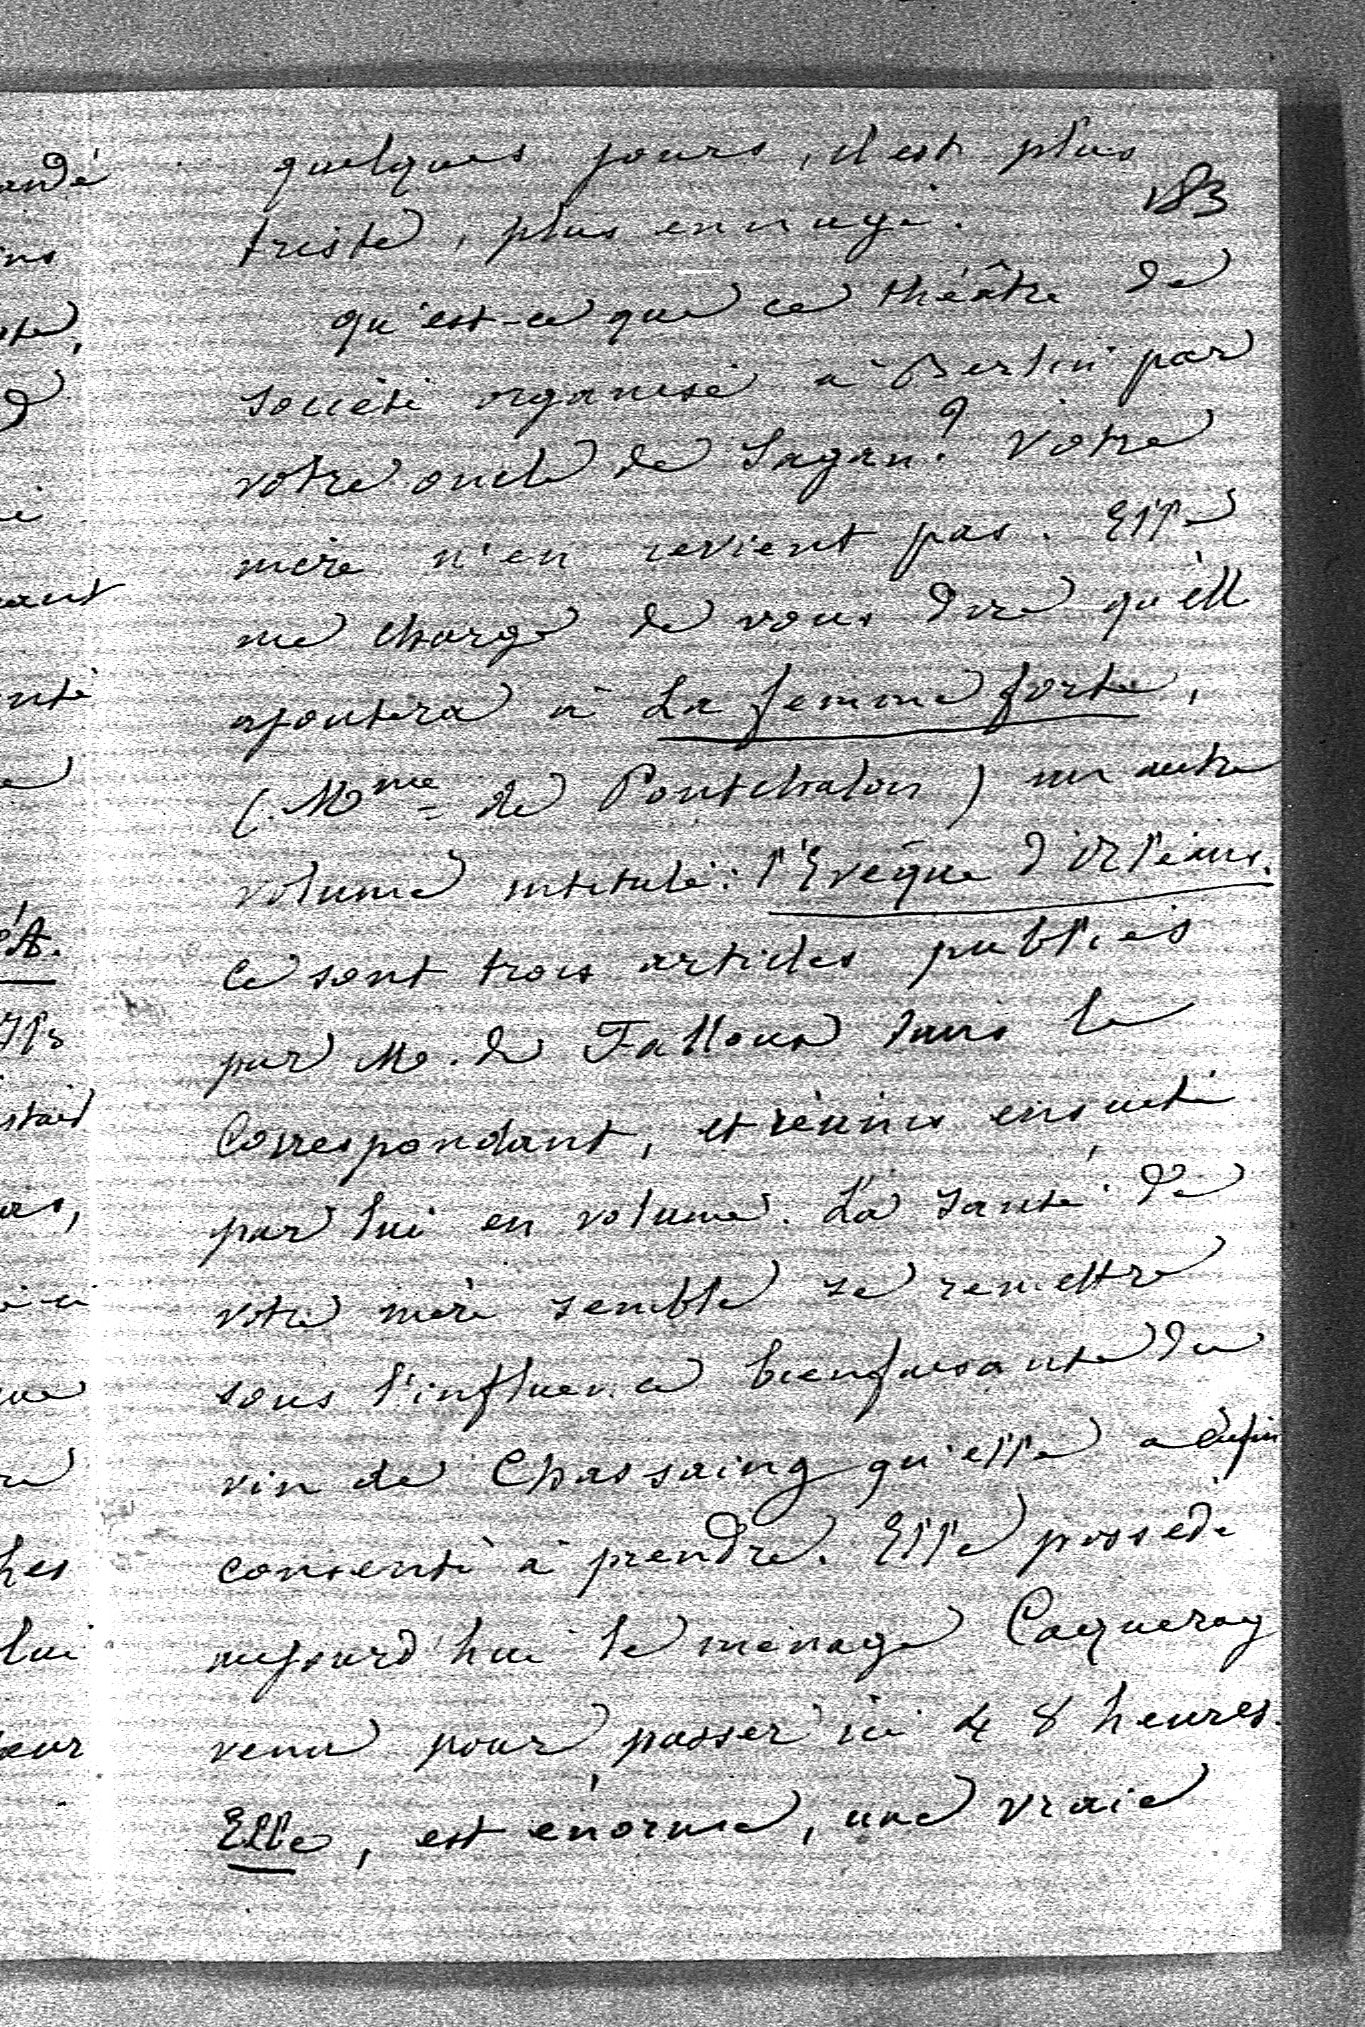 quelques jours, il est plus
183
triste, plus ennuyé.
qu'est-ce que ce théâtre de
société organisé à Berlin par
votre oncle de Sagan? Votre
mère n'en revient pas. Elle
me charge de vous dire qu'elle
ajoutera à La femme forte,
(Mme de Pontchalon) un autre
volume intitulé: l'Evêque d'Orléans.
Ce sont trois articles publiés
par M. de Falloux dans le
Correspondant, et réunis ensuite
par lui en volume. La santé de
votre mère semble se remettre
sous l'influence bienfaisante du
vin de Chassaing qu'elle a enfin
consenti à prendre. Elle possède
aujourd'hui le ménage Caqueray
venu pour passer ici 48 heures.
Elle, est énorme, une vraie